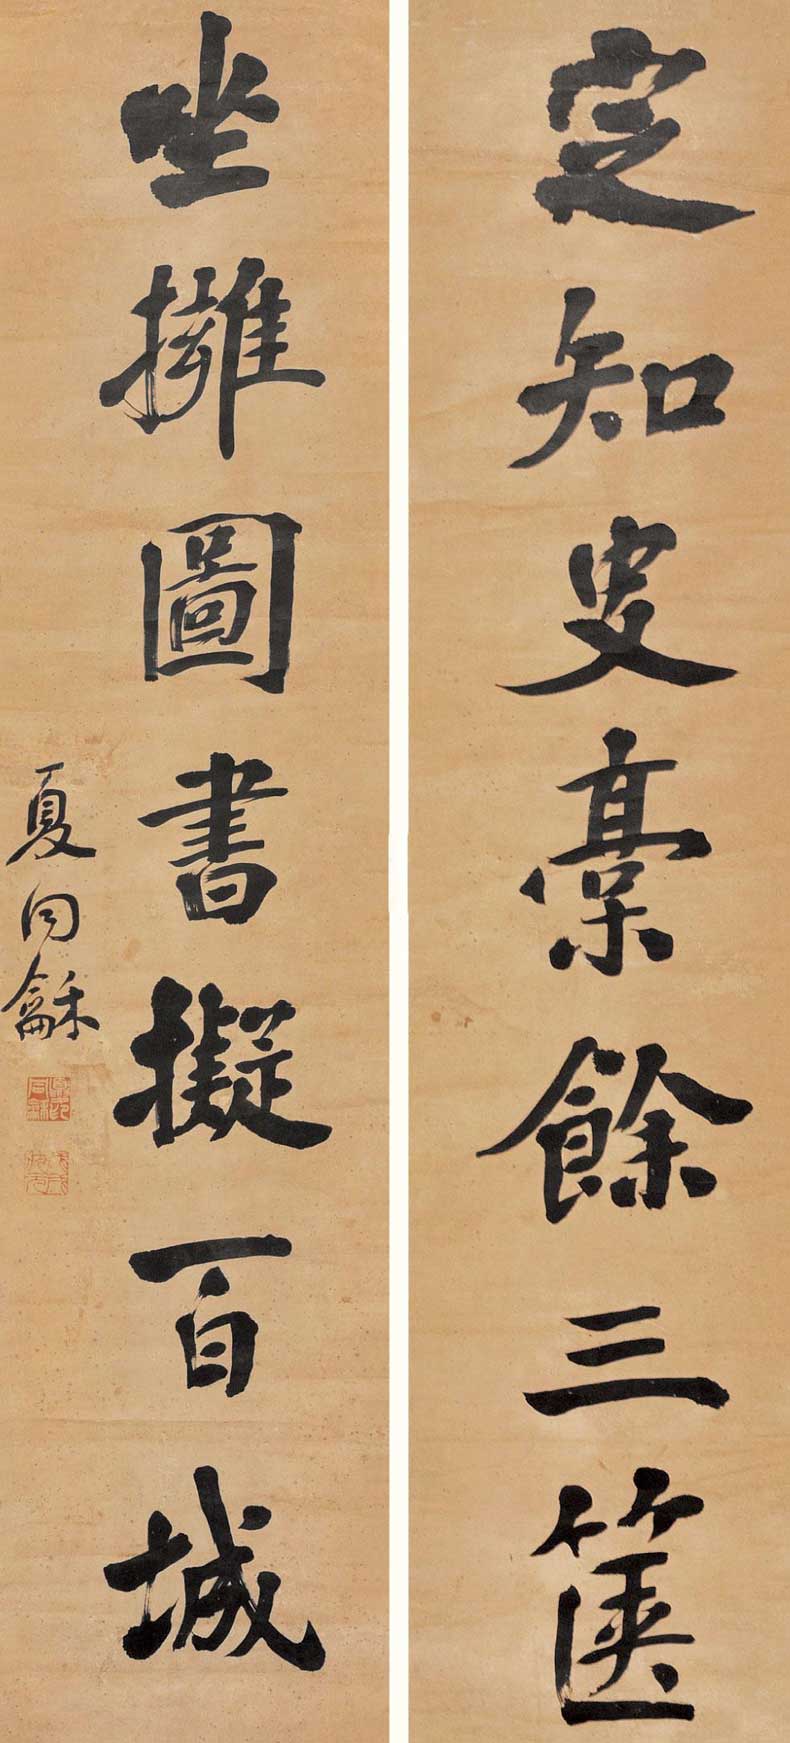 定知叟稾餘三篋
坐擁圖書擬百城
夏同龢